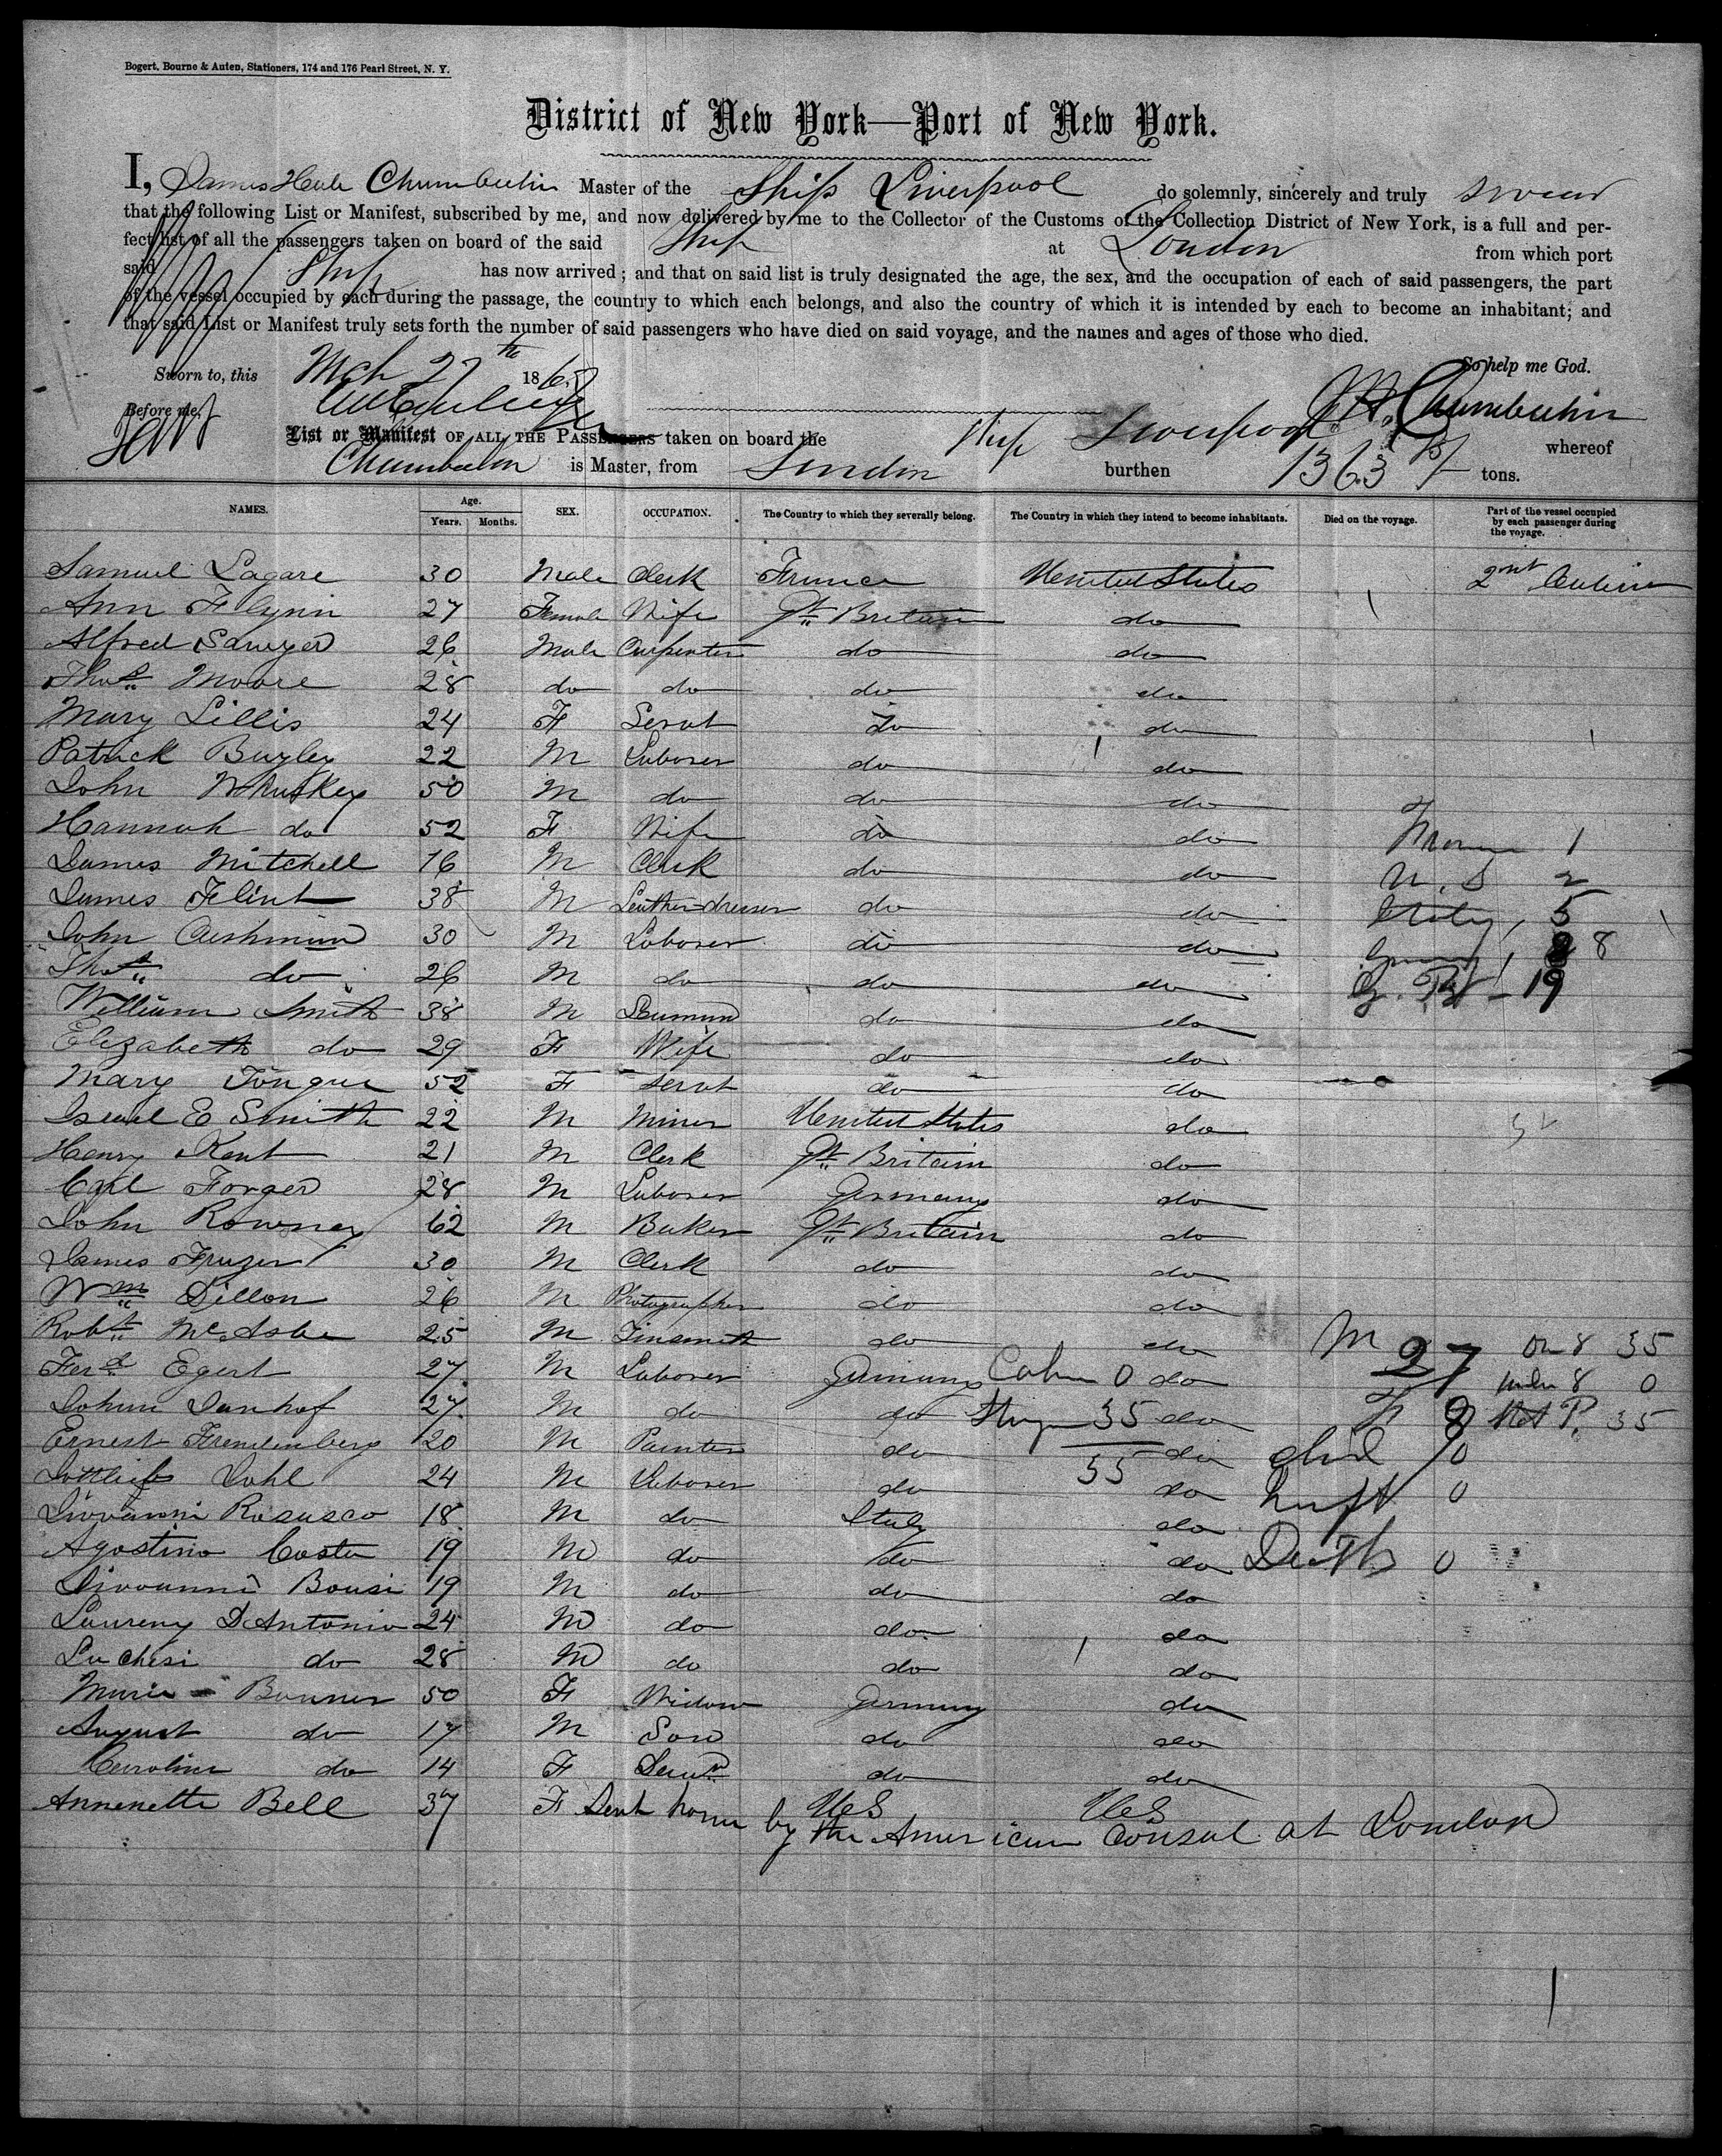 Bogert, Bourne & Auten, Stationers, 174 and 176 Pearl Street, N. Y.
District of New York—Port of New York.
I, James Chamberlin Master of the Ship Liverpool do solemnly, sincerely and truly swear
that the following List or Manifest, subscribed by me, and now delivered by me to the Collector of the Customs of the Collection District of New York, is a full and per-
fect list of all the passengers taken on board of the said Ship at London from which port
said Ship has now arrived; and that on said list is truly designated the age, the sex, and the occupation of each of said passengers, the part
of the vessel occupied by each during the passage, the country to which each belongs, and also the country of which it is intended by each to become an inhabitant; and
that said List or Manifest truly sets forth the number of said passengers who have died on said voyage, and the names and ages of those who died.
So help me God.
Sworn to, this Mch 27th 186
J. H. Chamberlin
Before me,
List or Manifest OF ALL THE PASSENGERS taken on board the Ship Liverpool whereof
Chamberlin is Master, from London burthen 1363 tons.
NAMES. Age. Years. Months. SEX. OCCUPATION. The Country to which they severally belong. The Country in which they intend to become inhabitants. Died on the voyage. Part of the vessel occupied by each passenger during the voyage.
Samuel Lagare 30 Male Clerk France United States 2nd Cabin
Ann Flynn 27 Female Wife Gt. Britain do
Alfred Sawyer 26 Male Carpenter do do
Thos. Moore 28 do do do do
Mary Lillis 24 F Servt do do
Patrick Bugley 22 M Laborer do do
John Whuskey 50 M do do do
Hannah do 52 F Wife do do France 1
James Mitchell 16 M Clerk do do U. S 2
James Flint 38 M Leather dresser do do Italy, 5
John Cushman 30 M Laborer do do Germany 8
Thos. do 26 M do do do G. Bt - 19
William Smith 38 M Seaman do do
Elizabeth do 29 F Wife do do
Mary Tongue 52 F Servt do do
Israel E Smith 22 M Miner United States do
Henry Kent 21 M Clerk Gt. Britain do
Carl Forger 28 M Laborer Germany do
John Rowney 62 M Baker Gt. Britain do
James Frazer 30 M Clerk do do
Wm. Dillon 26 M Photographer do do
Robt. McAsbe 25 M Tinsmith do do M 27 on 8 35
Ferd. Egert 27 M Laborer Germany Cabin 0 do under 8 0
Johann Danhof 27 M do do Stge 35 do F 8 Not P. 35
Ernest Frendenberg 20 M Painter do 35 do chil 0
Gottlieb Dohl 24 M Laborer do do 0
Giovanni Rosasco 18 M do Italy do
Agostino Costa 19 M do do do Deaths 0
Giovanni Bousi 19 M do do do
Laureny D'Antonio 24 M do do do
Luchesi do 28 M do do do
Maria Bonner 50 F Widow Germany do
August do 17 M Son do do
Carolina do 14 F do do
Annenette Bell 37 F U S U S
Sent home by the American Consul at London